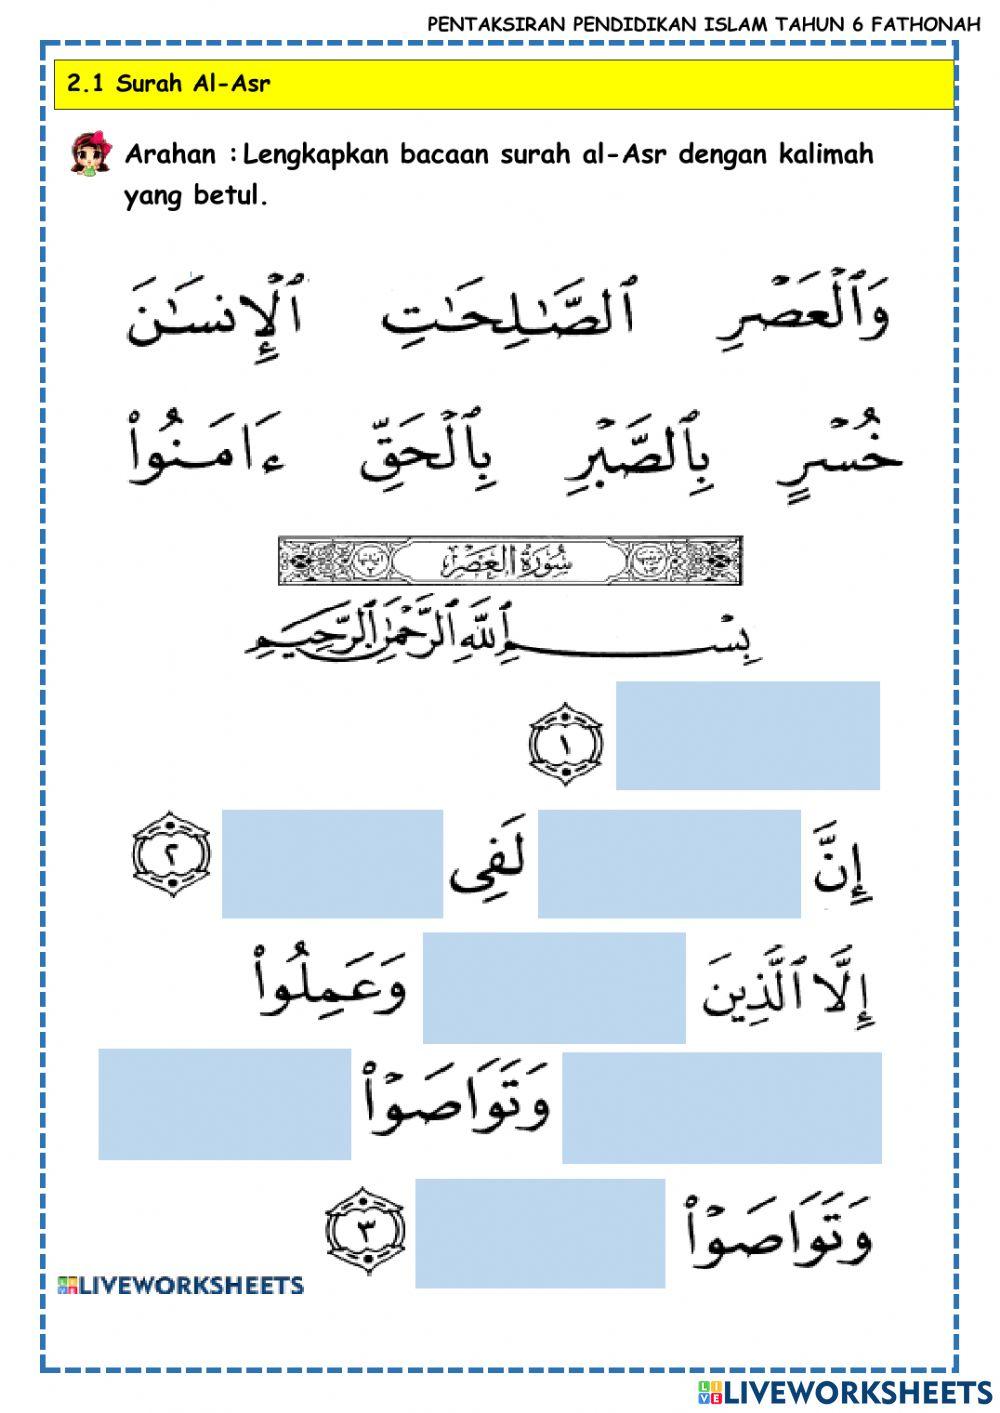 PENTAKSIRAN PENDIDIKAN ISLAM TAHUN 6 FATHONAH
2.1 Surah Al-Asr
Arahan : Lengkapkan bacaan surah al-Asr dengan kalimah
yang betul.
وَٱلْعَصْرِ ٱلصَّـٰلِحَـٰتِ ٱلْإِنسَـٰنَ
خُسْرٍ بِٱلصَّبْرِ بِٱلْحَقِّ ءَامَنُوا۟
سُورَةُ العَصْرِ
بِسْمِ ٱللَّهِ ٱلرَّحْمَـٰنِ ٱلرَّحِيمِ
١
إِنَّ لَفِى ٢
إِلَّا ٱلَّذِينَ وَعَمِلُوا۟
وَتَوَاصَوْا۟
وَتَوَاصَوْا۟ ٣
LIVEWORKSHEETS
LIVEWORKSHEETS